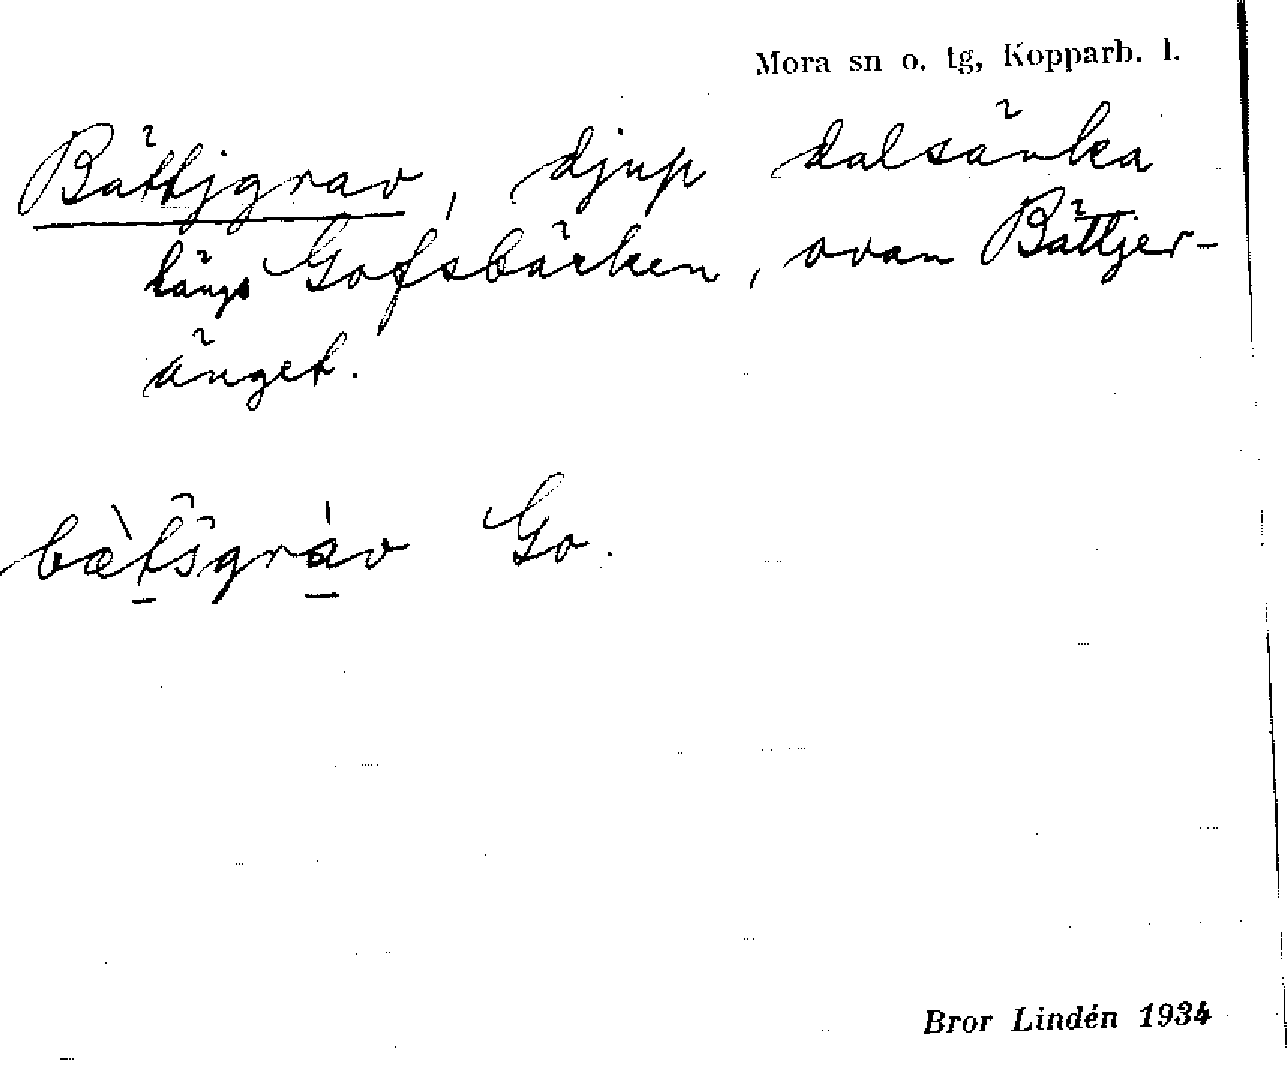 Mora sn o. tg, Kopparb. l.
Bättjgrav, djup dalsänka
längs Gofsbäcken, ovan Bättjer-
änget.
bæ̀t̠s̑gráv Go.
Bror Lindén 1934